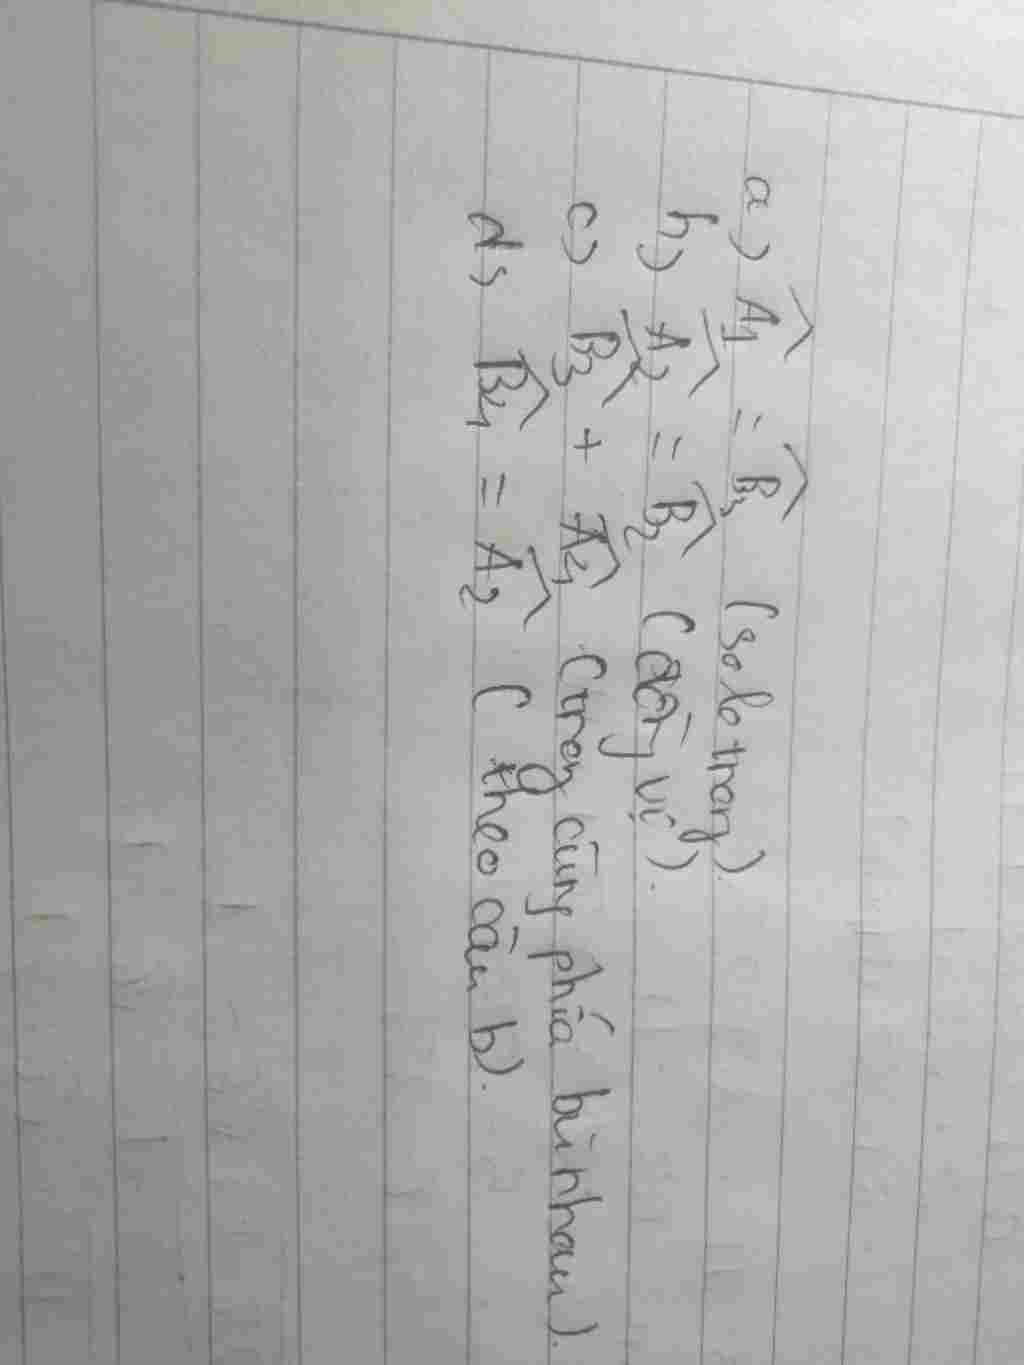 a) Â1 = B̂3 (so le trong).
b) Â2 = B̂2 (đồng vị).
c) B̂3 + Â2 (trong cùng phía bù nhau).
d) B̂1 = Â2 (theo câu b).